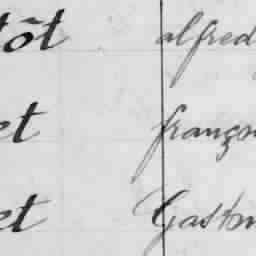 tôt alfred
et franço
et Gaston